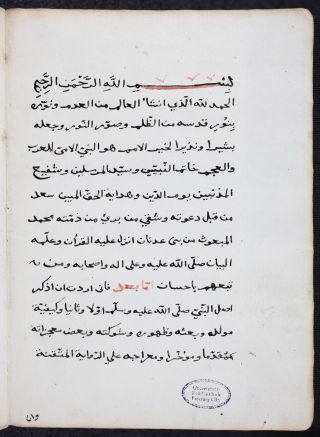 بسم الله الرحمن الرحيم
الحمد لله الذي انشاء العالم من العدم ونوّره
بنور قدسه من الظلم وصوّر النور وجعله
بشيرا ونذيرا لخير الامم هو النبي الامي للعرب
والعجم خاتم النبيّين وسيّد المرسلين وشفيع
المذنبين يوم الدين وهداية الحقّ المبين سعد
من قبل دعوته وشقي من برئ من ذمّته محمد
المبعوث من بنى عدنان انزل عليه القرآن وعلّمه
البيان صلّى الله عليه وعلى اله واصحابه ومن
تبعهم باحسان امّا بعد فانى اردت ان اذكر
اصل النبيّ صلّى الله عليه وسلّم اوّلا وثانيا وكيفيّة
مولده وبعثه وظهوره وشوكته وبعض معجزاته
مقدما ومؤخّرا ومعراجه على الرواية المتّفقة
Universitäts-
bibliothek
Freiburg i. Br.